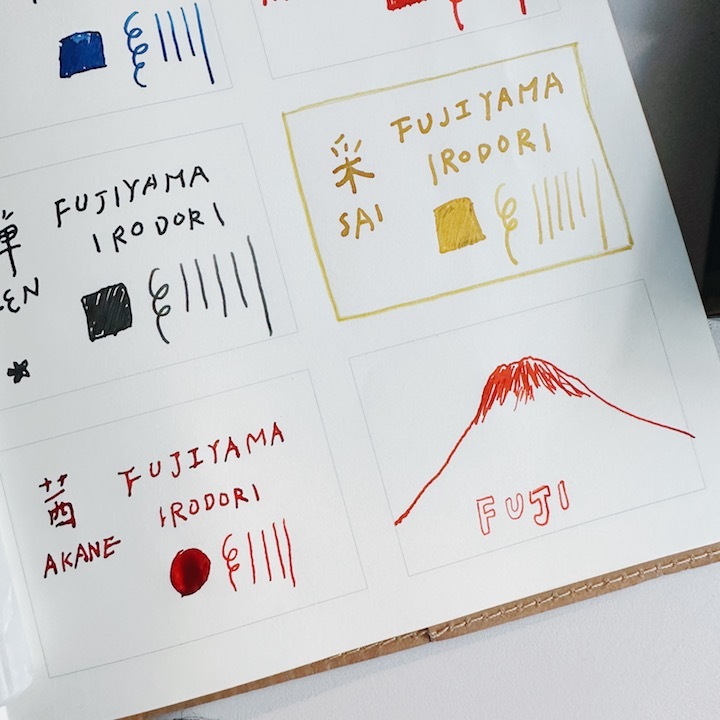 FUJIYAMA
IRODORI
EN
采
SAI
FUJIYAMA
IRODORI
茜
AKANE
FUJIYAMA
IRODORI
FUJI